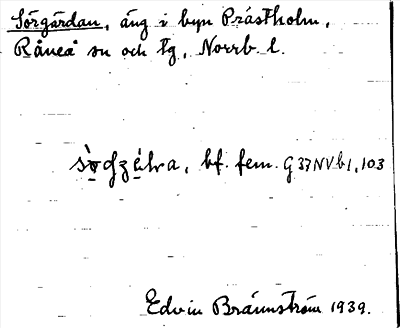 Sörgärdan, äng i byn Prästholm,
Råneå sn och tg, Norrb. l.
bf. fem. G 37 NV b1, 103
Edvin Brännström 1939.